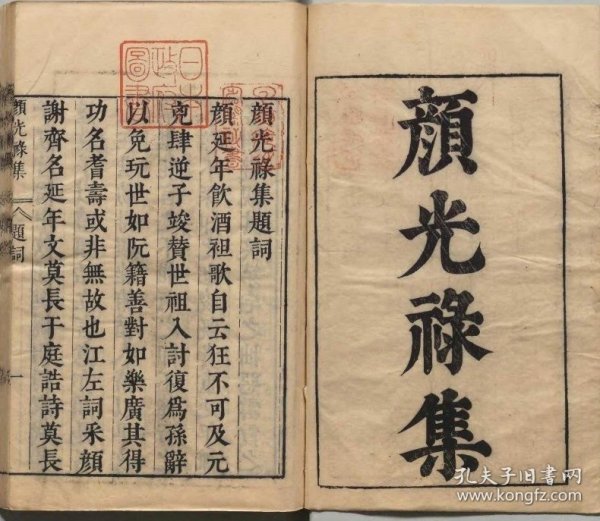 顔光祿集
顏光祿集題詞
顏延年飲酒袒歌自云狂不可及元
兇肆逆子竣贊世祖入討復爲孫辭
以免玩世如阮籍善對如樂廣其得
功名耆壽或非無故也江左詞采顏
謝齊名延年文莫長于庭誥詩莫長
顔光祿集
題詞
一
日本
政府
圖書
孔夫子旧书网
www.kongfz.com